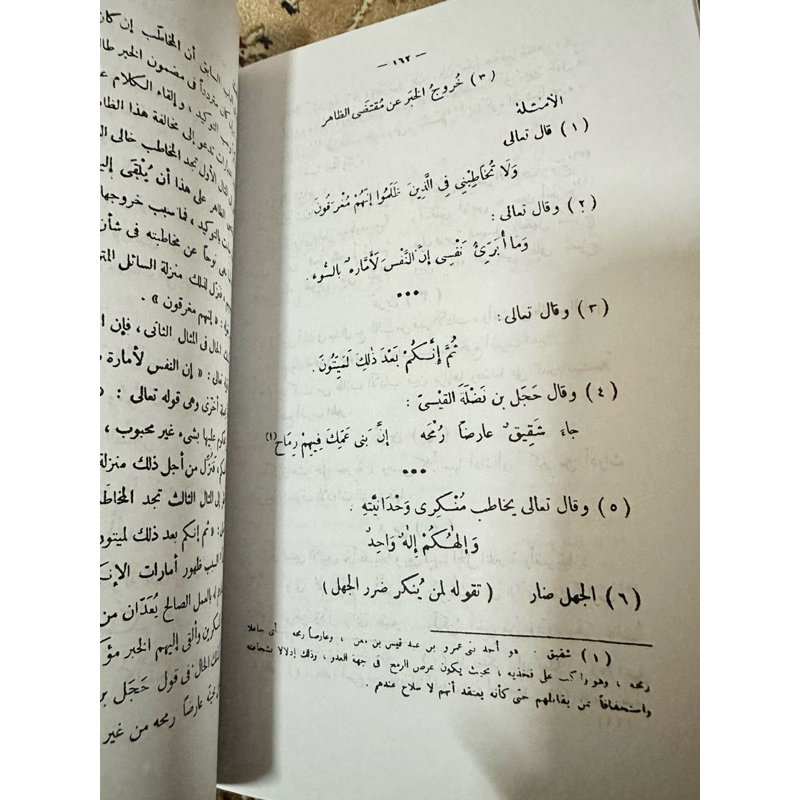 — ١٦٢ —
(٣) خُروجُ الخبر عن مُقتضَى الظاهر
الأمثلة
(١) قال تعالى
وَلَا تُخَاطِبْنِي فِي الَّذِينَ ظَلَمُوا إِنَّهُمْ مُغْرَقُونَ .
(٢) وقال تعالى :
وَمَا أُبَرِّئُ نَفْسِي إِنَّ النَّفْسَ لَأَمَّارَةٌ بِالسُّوء .
•••
(٣) وقال تعالى :
ثُمَّ إِنَّكُمْ بَعْدَ ذَلِكَ لَمَيِّتُونَ .
(٤) وقال حَجَل بن نَضْلَةَ القَيْسيّ :
جاء شَقِيقٌ عارضاً رُمْحَه إنَّ بَنى عَمِّكَ فِيهِمْ رِماح (١)
•••
(٥) وقال تعالى يخاطب مُنْكِرى وَحْدَانِيَّتِهِ .
وَإِلَهُكُمْ إِلَهٌ وَاحِدٌ
(٦) الجهل ضار (تقوله لمن يُنكر ضرر الجهل)
(١) شقيق . هو أحد بنى عمرو بن عبد قيس بن معن ، وعارضاً رمحه أى جاعلا
رمحه ، وهو راكب على فخذيه ، بحيث يكون عرض الرمح فى جهة العدو ، وذلك إدلالا بشجاعته
واستخفافاً بمن يقابلهم حتى كأنه يعتقد أنهم لا سلاح عندهم .
السابق أن المخاطَب إن كان
متردداً فى مضمون الخبر
التوكيد ، وإلقاء الكلام
تدعو إلى مخالفة هذا
الأول تجد المخاطب خالى
الظاهر على هذا أن يُلْقَى
بالتوكيد ، فما سبب خروجها
نوحاً عن مخاطبته فى شأن
فنزّل لذلك منزلة السائل
« إنهم مغرقون » .
الحال فى المثال الثانى ، فإن
تعالى : « إن النفس لأمارة
أخرى وهى قوله تعالى : «
عليها بشىء غير محبوب ،
فنُزّل من أجل ذلك منزلة
إلى المثال الثالث تجد
« ثم إنكم بعد ذلك
السبب ظهور أمارات
بالعمل الصالح يُعَدّان من
وألقى إليهم الخبر
الحال فى قول حَجَل
عارضاً رمحه من غير